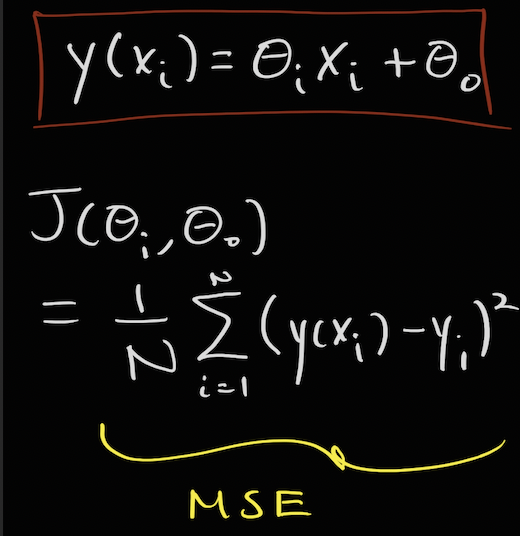 y(xᵢ) = θᵢxᵢ + θ₀
J(θᵢ, θ₀)
= 1/N Σᵢ₌₁ᴺ (y(xᵢ) - yᵢ)²
MSE